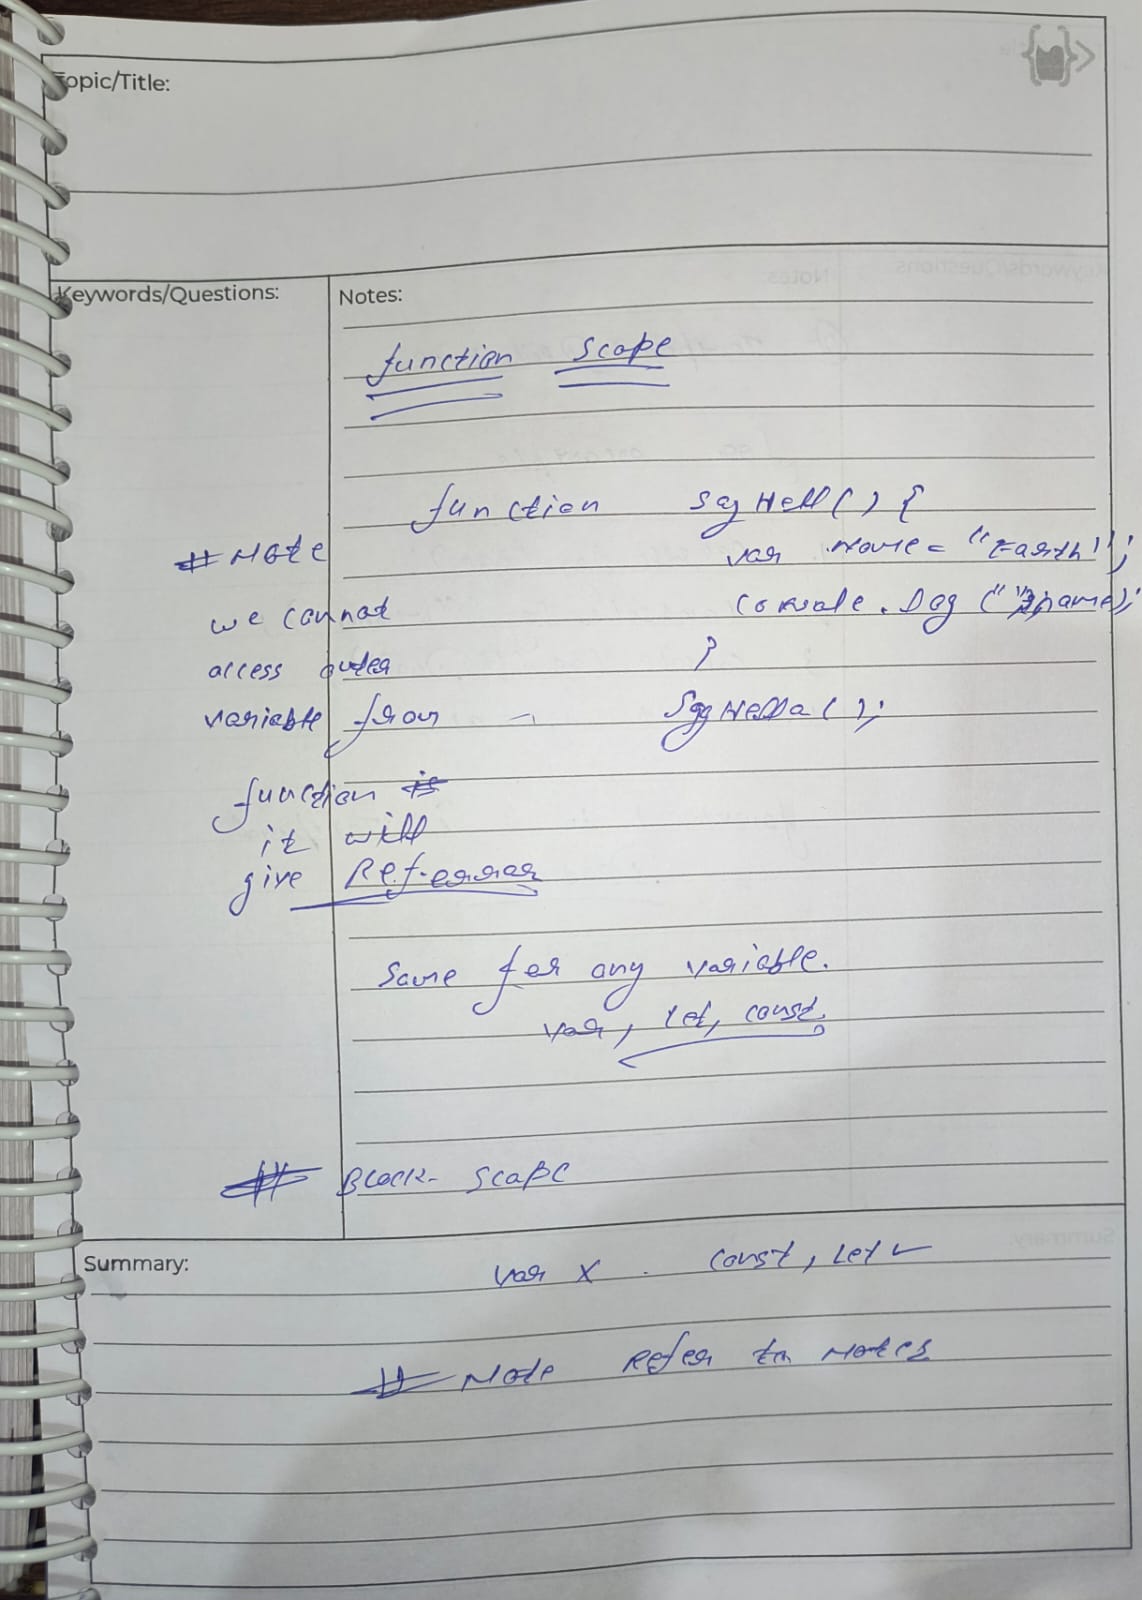 Topic/Title:
Keywords/Questions:
Notes:
function scope
function sayHell() {
var name = "Earth";
console.log(name);
}
sayHello();
# Note
we cannot
access outer
variable from
function
it will
give Ref-error
Same for any variable.
var, let, const.
# Block-scope
Summary:
var x . const, let ✓
# Note Refer to Notes